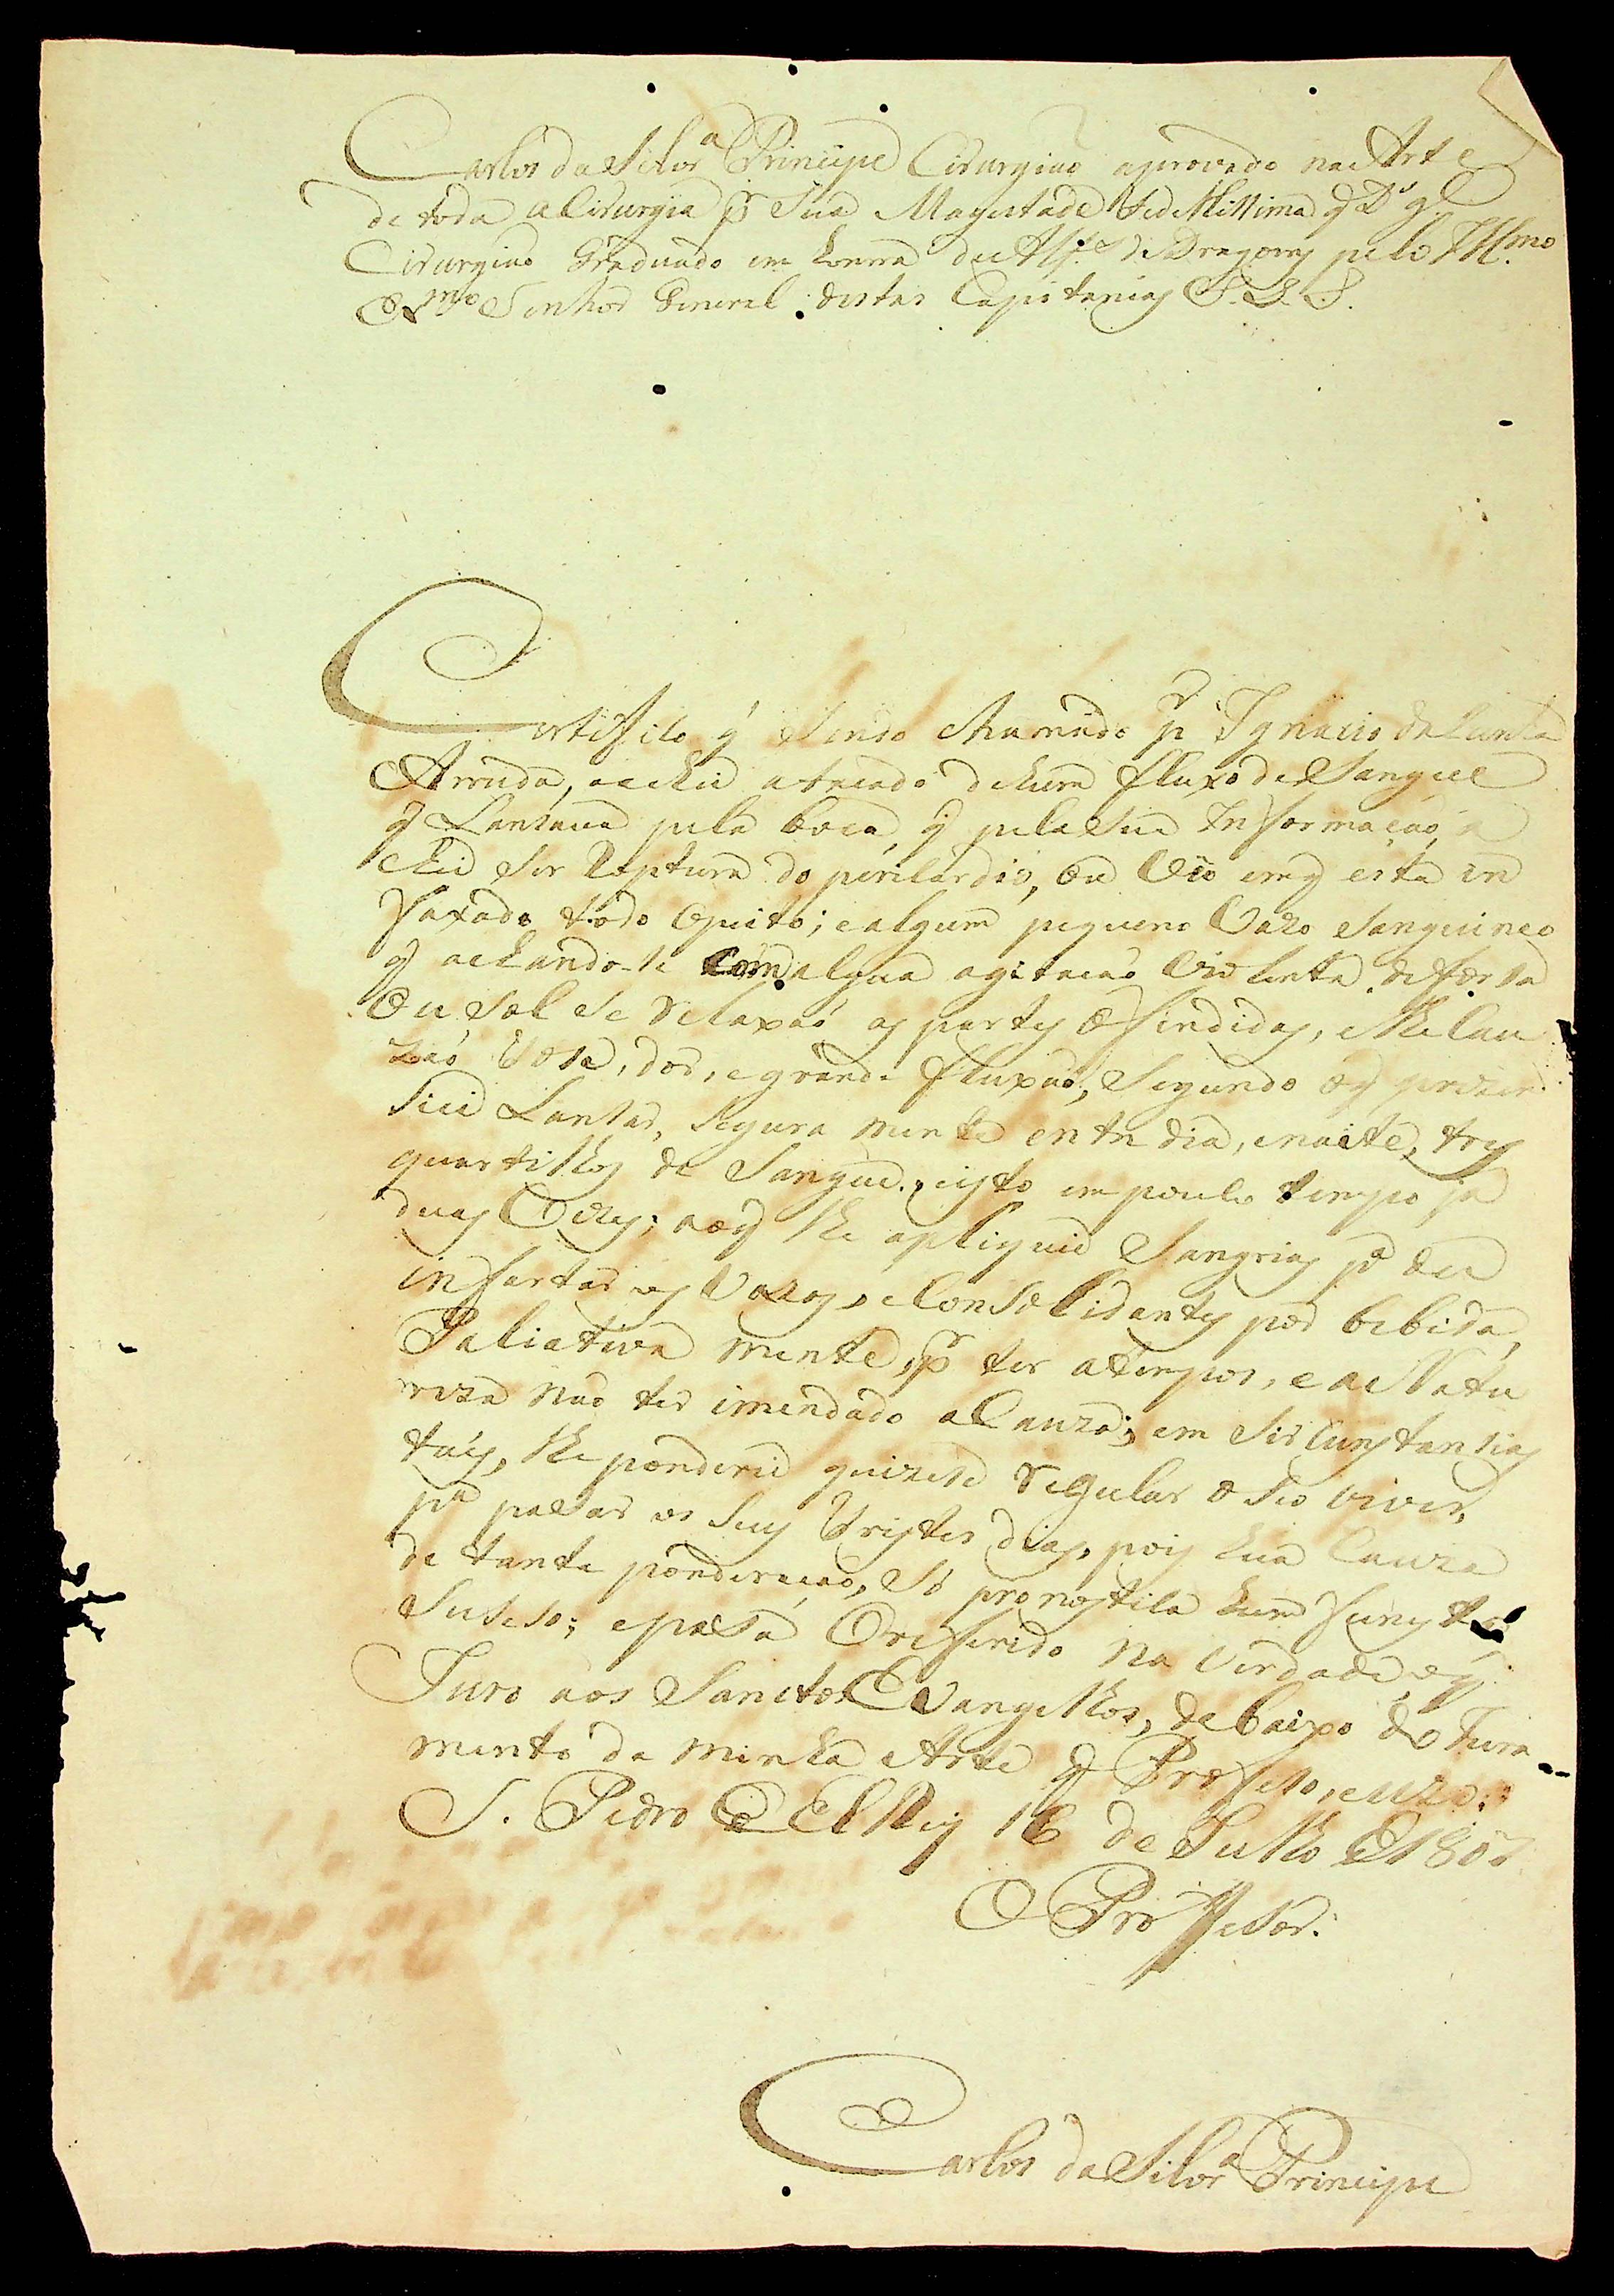 Carlos da Silvr.ª Principe Cirurgiao aprovado na Arte
de toda a Cirurgia p.r Sua Magestade Fedillissima q D.s g.e
Cirurgiao Graduado em honra de Alf.es de Dragoens pelo Ill.mo
Ex.mo Senhor General destas Capitanias
Certifico q̃ sendo chamado p.r Ignacio da Cunha
Arruda, achei atacado de hum fluxo de Sangue
q̃ Lansava pela boca, q̃ pela sua Informação a
chei ser Ruptura do pericardio, ou em q̃ está in
faxado todo opeito; e algum pequeno Vazo Sanguineo
q̃ achando-se com algua agitacaó Violenta de forsa
ou Sol se relaxaó as partes ofendidas, e lhe Cau
zaó dor, e grande fluxaó; Segundo oq̃ prezen
siei Lansar, Segura mente entre dia, enoite, tres
quartilhos de Sangue, eisto empouco tempo já
duas Vezes; aoq̃ lhe apliquei Sangrias p.ª
os Vazos, eConsolidantes por bebida,
Paliativa mente, p.r ter a tempos, e a Natu
reza naó ter imendado a Cauza; em Sircunstansias
tais, lhe ponderei quizese regular o Seo viver,
p.ª pasar os Seus tristes dias, pois hua Cauza
de tanta ponderacaó, Só pronostica hum funesto
Suseso; epasa Oreferido na verdade, oq̃
Juro aos Sanctos Evangelhos, debaixo do Jura
mento da minha Arte q̃ Profeso, euzo.
S. Pedro de ElRey 16 de Julho de 180
O Profesor.
Carlos da Silvr.ª Principe